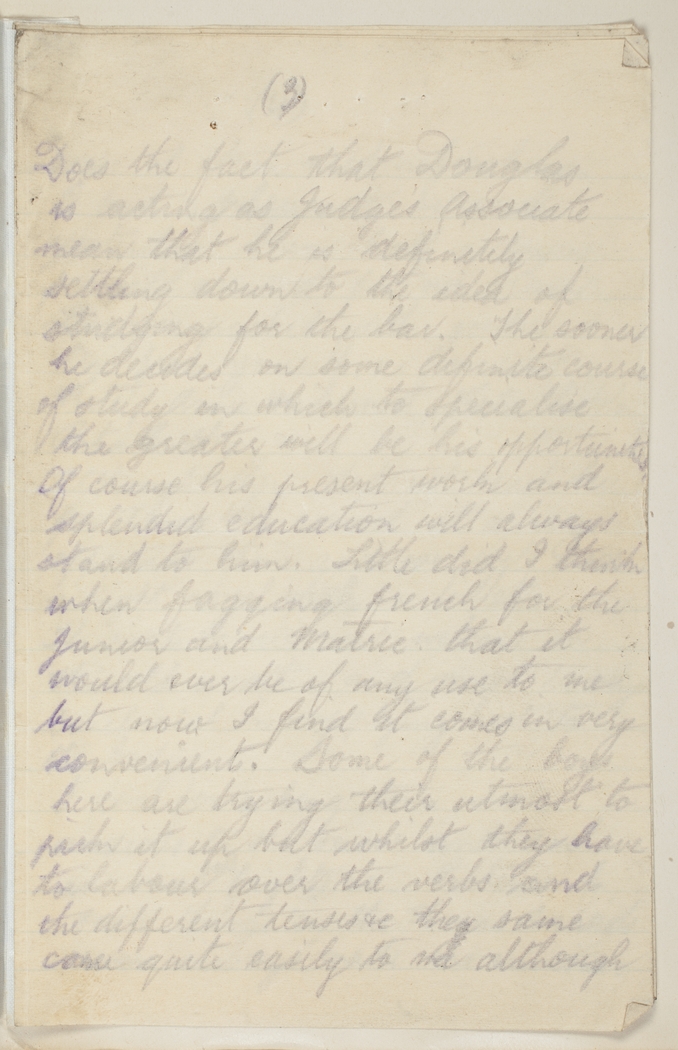 (3)
Does the fact that Douglas
is acting as Judge's Associate
mean that he is definitely
settling down to the idea of
studying for the bar. The sooner
he decides on some definite course
of study in which to specialise
the greater will be his opportunities
Of course his present work and
splendid education will always
stand to him. Little did I think
when fagging french for the
Junior and Matric. that it
would ever be of any use to me
but now I find it comes in very
convenient. Some of the boys
here are trying their utmost to
pick it up but whilst they have
to labour over the verbs and
the different tenses &c they same
come quite easily to me although